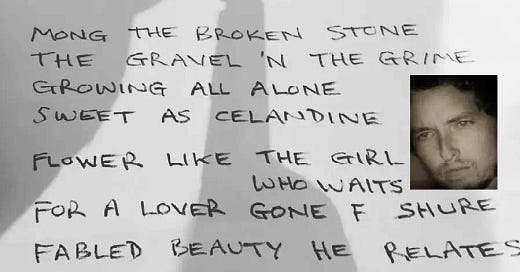 MONG THE BROKEN STONE
THE GRAVEL 'N THE GRIME
GROWING ALL ALONE
SWEET AS CELANDINE
FLOWER LIKE THE GIRL
WHO WAITS
FOR A LOVER GONE F SHURE
FABLED BEAUTY HE RELATES